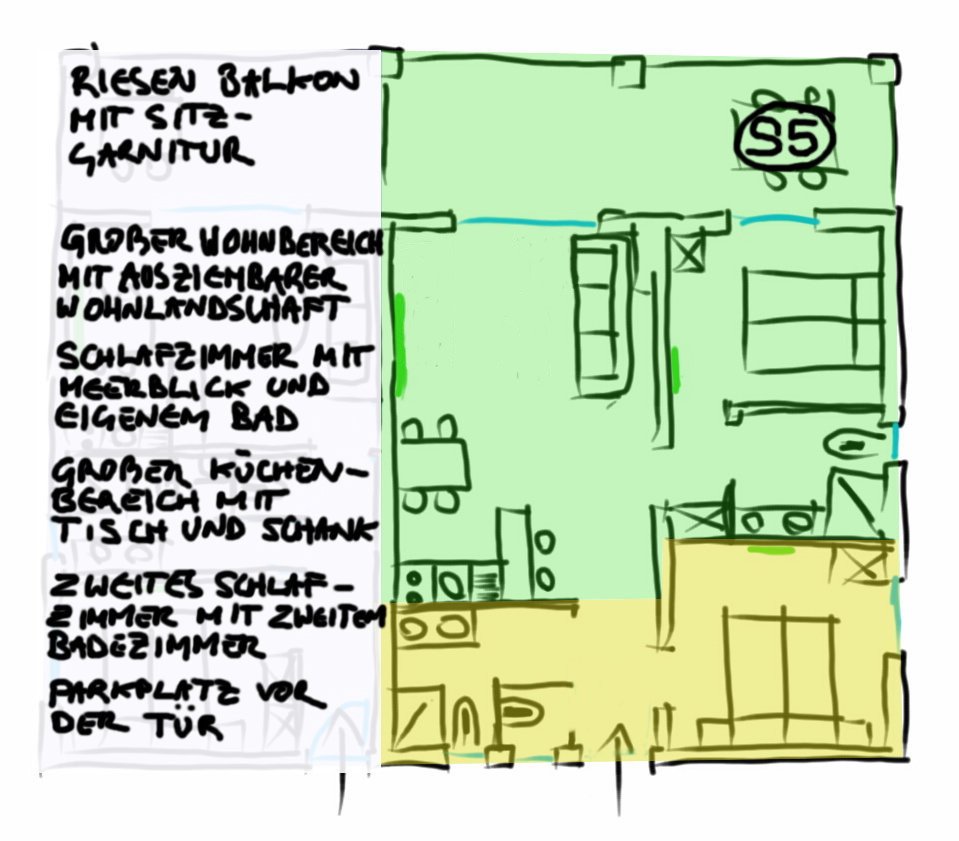 RIESEN BALKON
MIT SITZ-
GARNITUR
GROßER WOHNBEREICH
MIT AUSZIEHBARER
WOHNLANDSCHAFT
SCHLAFZIMMER MIT
MEERBLICK UND
EIGENEM BAD
GROßER KÜCHEN-
BEREICH MIT
TISCH UND SCHANK
ZWEITES SCHLAF-
ZIMMER MIT ZWEITEM
BADEZIMMER
PARKPLATZ VOR
DER TÜR
S5